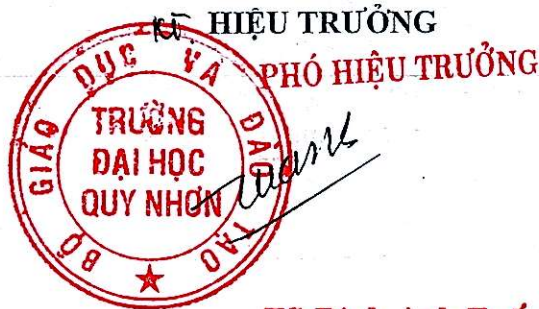 KT HIỆU TRƯỞNG
PHÓ HIỆU TRƯỞNG
BỘ GIÁO DỤC VÀ ĐÀO TẠO
TRƯỜNG
ĐẠI HỌC
QUY NHƠN